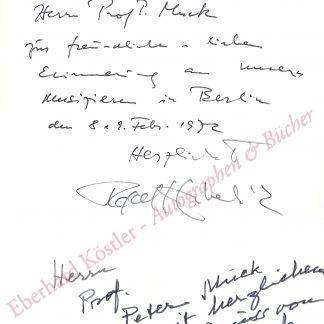 Herrn Prof. P. Muck
zur freundlichen u. lieben
Erinnerung an unseres
Musizieren in Berlin
den 8. u. 9. Febr. 1972
Herzlichst
Rafael Kubelik
Herrn
Prof.
Peter Muck
mit herzlichem
Gruss von
Eberhard Köstler - Autographen & Bücher